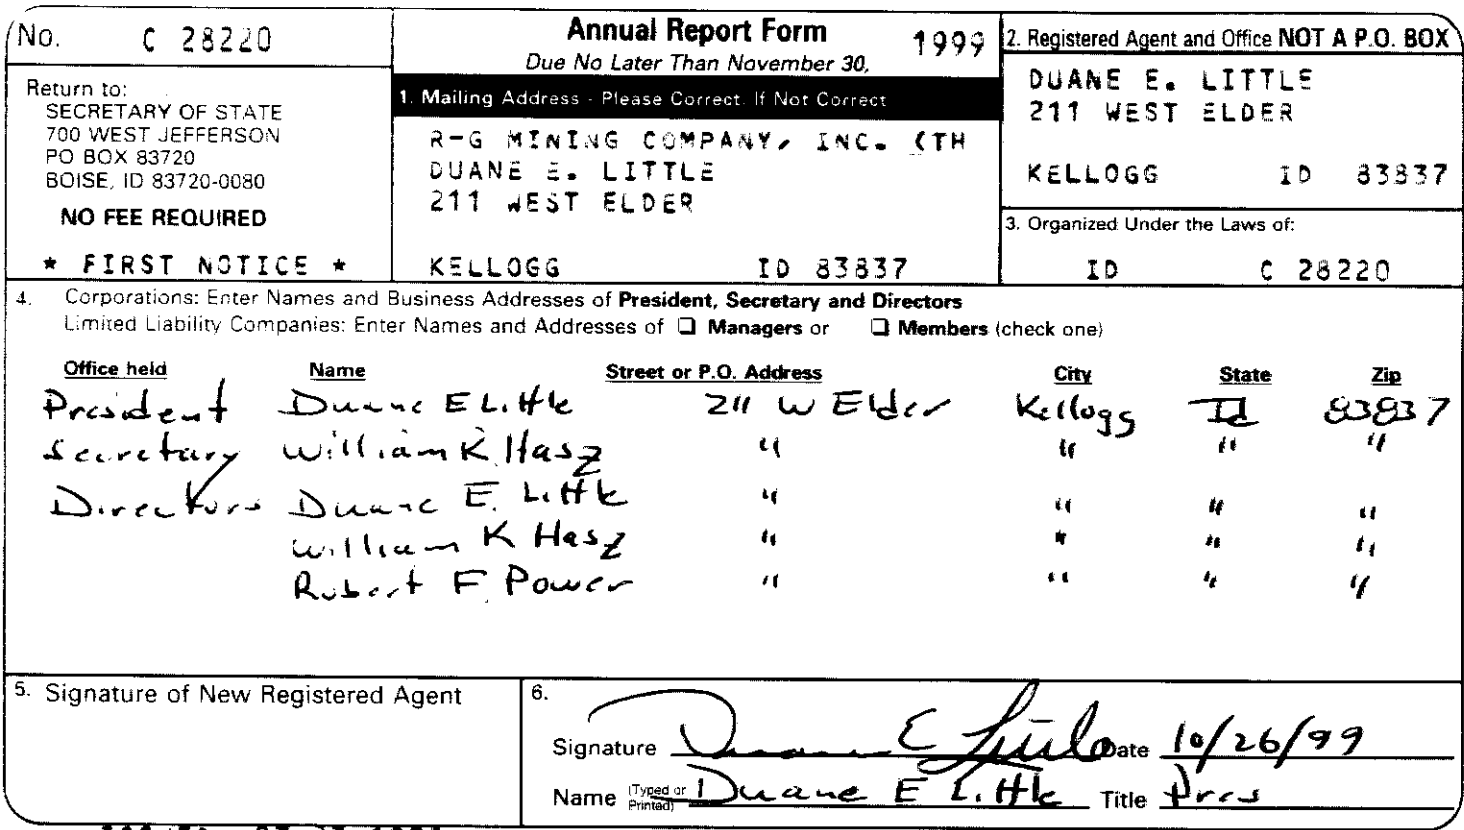 No. C 28220
Return to:
SECRETARY OF STATE
700 WEST JEFFERSON
PO BOX 83720
BOISE, ID 83720-0080
NO FEE REQUIRED
* FIRST NOTICE *
Annual Report Form 1999
Due No Later Than November 30,
1. Mailing Address - Please Correct If Not Correct
R-G MINING COMPANY, INC. (TH
DUANE E. LITTLE
211 WEST ELDER
KELLOGG ID 83837
2. Registered Agent and Office NOT A P.O. BOX
DUANE E. LITTLE
211 WEST ELDER
KELLOGG ID 83837
3. Organized Under the Laws of:
ID C 28220
4. Corporations: Enter Names and Business Addresses of President, Secretary and Directors
Limited Liability Companies: Enter Names and Addresses of ❑ Managers or ❑ Members (check one)
Office held Name Street or P.O. Address City State Zip
President Duane E Little 211 W Elder Kellogg Id 83837
Secretary William K Hasz " " " "
Directors Duane E. Little " " " "
William K Hasz " " " "
Robert F. Power " " " "
5. Signature of New Registered Agent
6.
Signature Duane E Little Date 10/26/99
Name (Typed or Printed) Duane E Little Title Pres